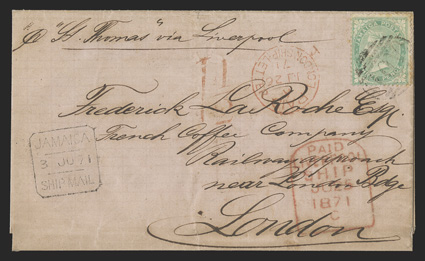 "St. Thomas" via Liverpool
Frederick LaRoche Esq.
French Coffee Company
Railway approach
near London Bdge
London
JAMAICA
3 JU 71
SHIP MAIL
PAID
SHIP
1871
C